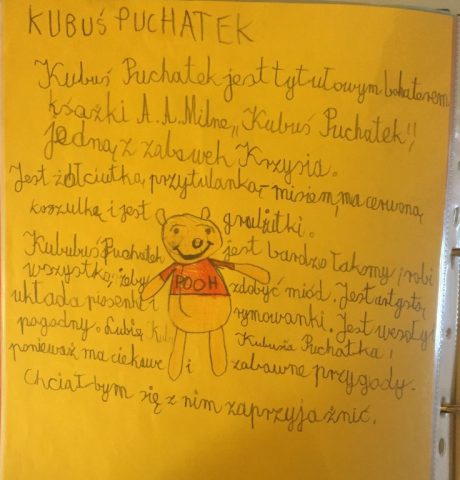 KUBUŚ PUCHATEK
Kubuś Puchatek jest tytułowym bohaterem
książki A. A. Milne „Kubuś Puchatek",
jedną z zabawek Krzysia.
Jest żółciutką przytulanką - misiem, ma cerwoną
koszulkę i jest grubiutki.
Kububuś Puchatek jest bardzo łakomy i robi
wszystko, żeby zdobyć miód. Jest artystą,
układa piosenki rymowanki. Jest wesoły i
pogodny. Lubię Kubusia Puchatka,
ponieważ ma ciekawe i zabawne przygody.
Chciał bym się z nim zaprzyjaźnić.
POOH